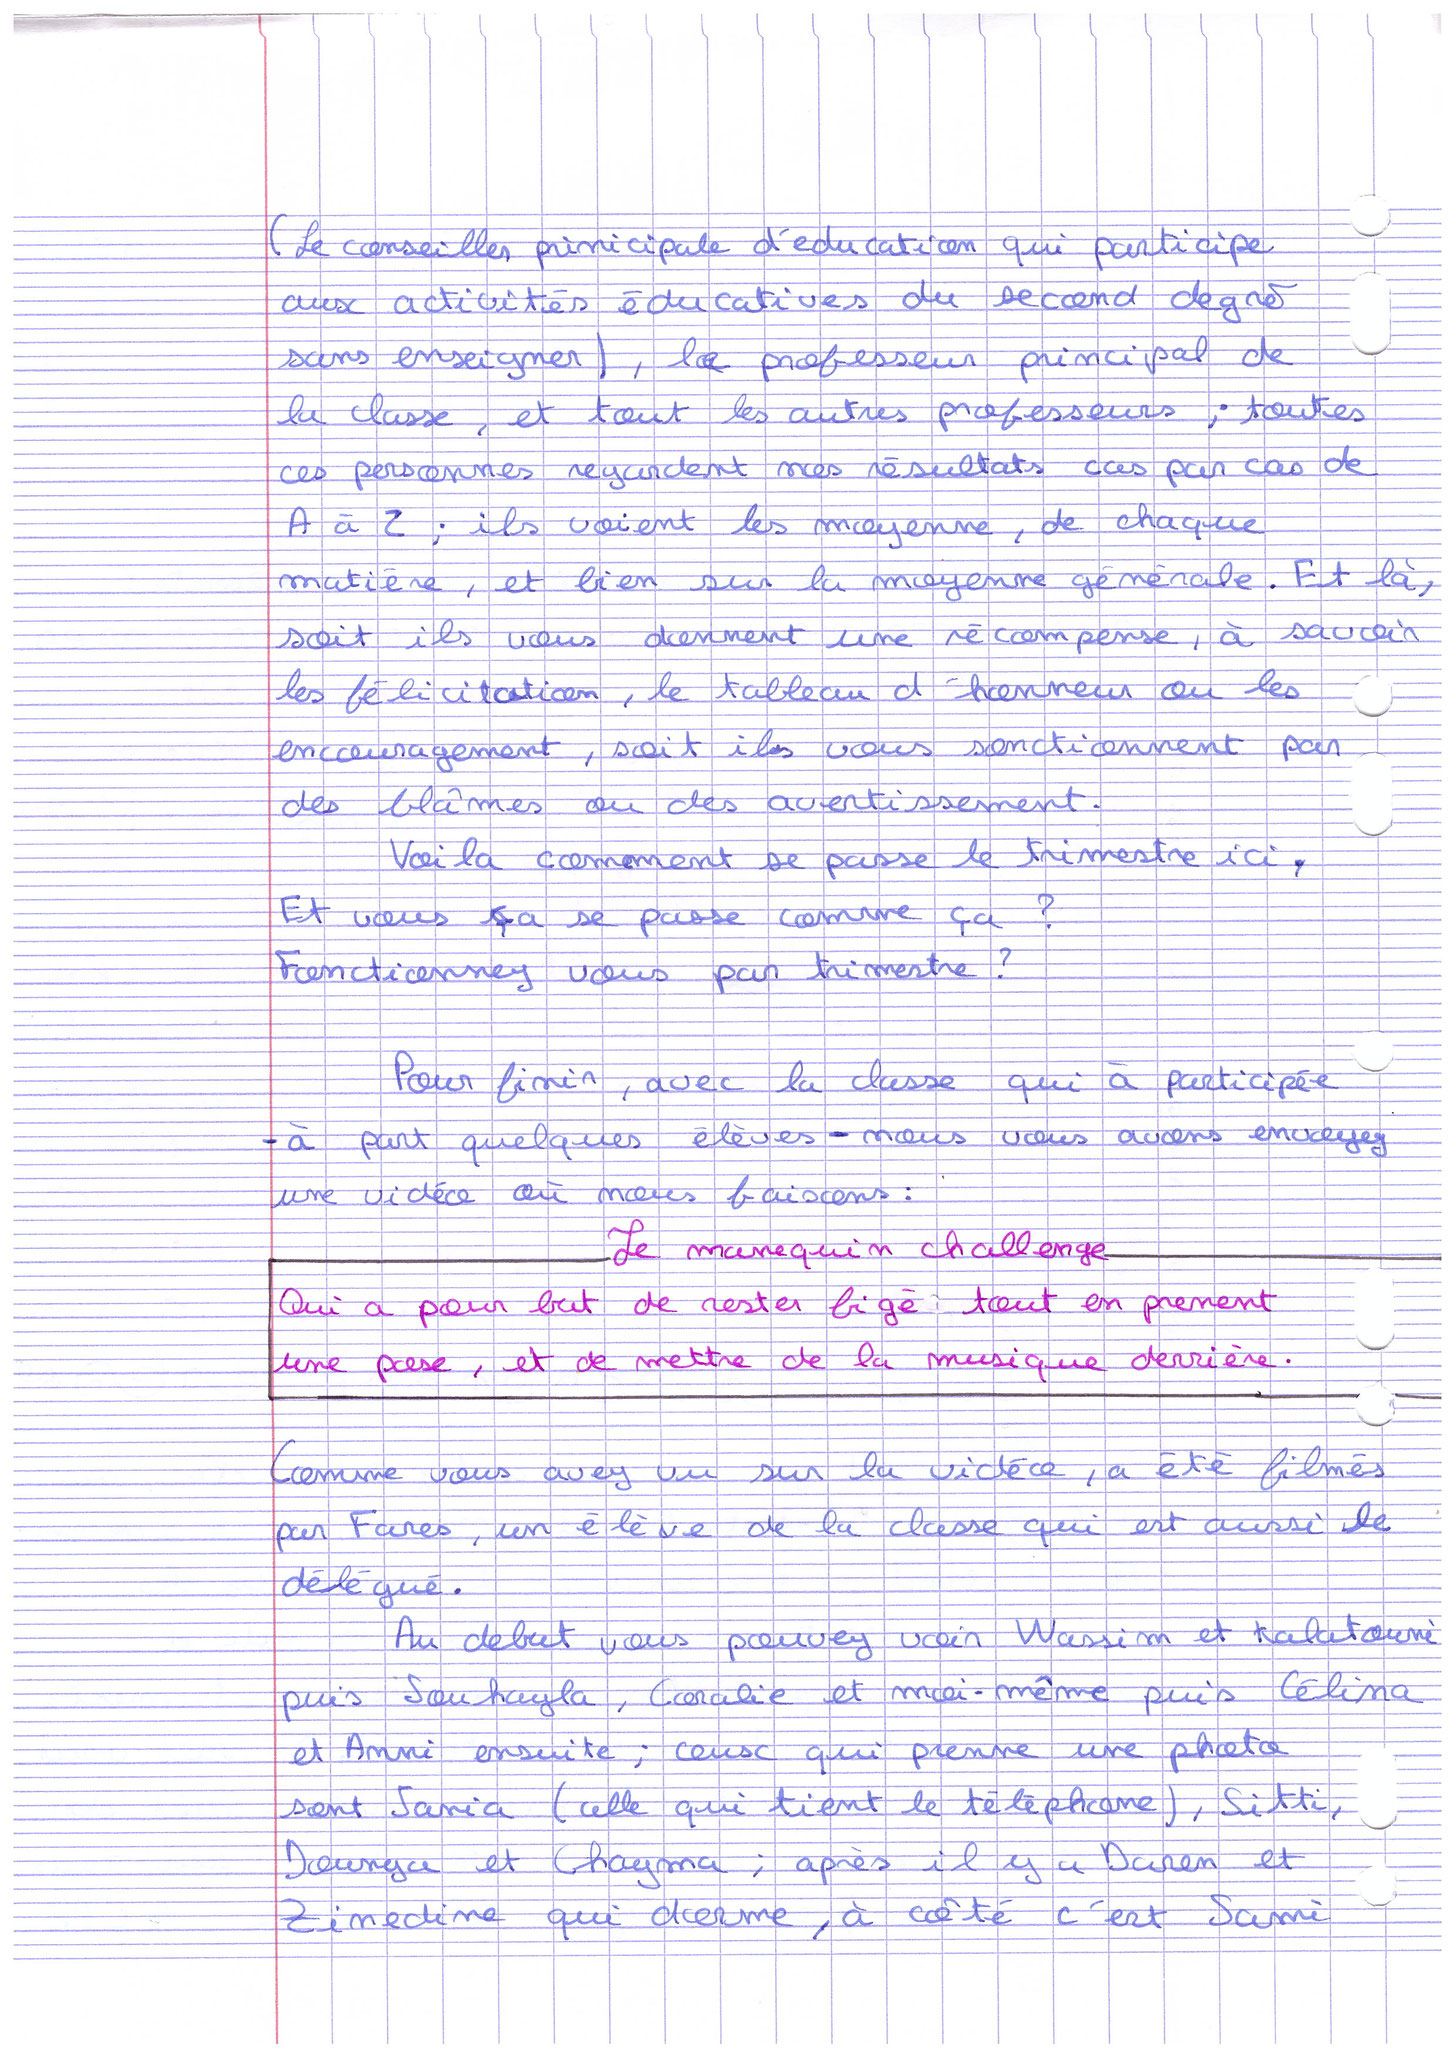 (Le conseiller principale d'education qui participe
aux activités éducatives du second degré
sans enseigner), le professeur principal de
la classe, et tout les autres professeurs ; toutes
ces personnes regardent nos résultats cas par cas de
A à Z ; ils voient les moyenne, de chaque
matière, et bien sur la moyenne générale. Et là,
soit ils vous donnent une récompense, à savoir
les félicitation, le tableau d'honneur ou les
encouragement, soit ils vous sanctionnent par
des blâmes ou des avertissement.
Voila comment se passe le trimestre ici,
Et vous ça se passe comme ça ?
Fonctionnez vous par trimestre ?
Pour finir, avec la classe qui à participée
- à part quelques élèves - nous vous avons envoyez
une vidéo où nous faisons :
Le manequin challenge
Qui a pour but de rester figé tout en prenent
une pose, et de mettre de la musique derrière.
Comme vous avez vu sur la vidéo, a été filmés
par Fares, un élève de la classe qui est aussi le
délégué.
Au debut vous pouvez voir Wassim et Kalatoumi
puis Souhayla, Coralie et moi-même puis Célina
et Anni ensuite ; ceux qui prenne une photo
sont Sania (celle qui tient le téléphone), Sitti,
Dounya et Chayma ; après il y a Daren et
Zinedine qui dorme, à côté c'est Sami